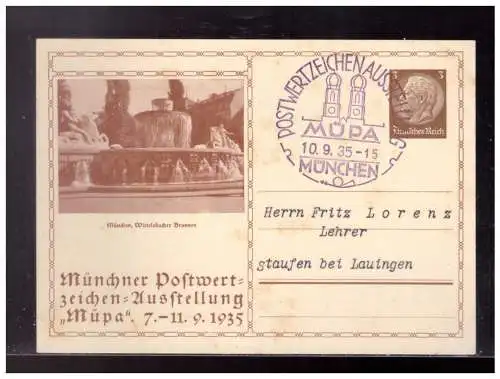 POSTWERTZEICHENAUSSTELLUNG
MÜPA
10.9.35-15
MÜNCHEN
3 3
Deutsches Reich
München, Wittelsbacher Brunnen
Herrn Fritz Lorenz
Lehrer
staufen bei Lauingen
Münchner Postwert-
zeichen=Ausstellung
„Müpa“. 7.-11.9.1935